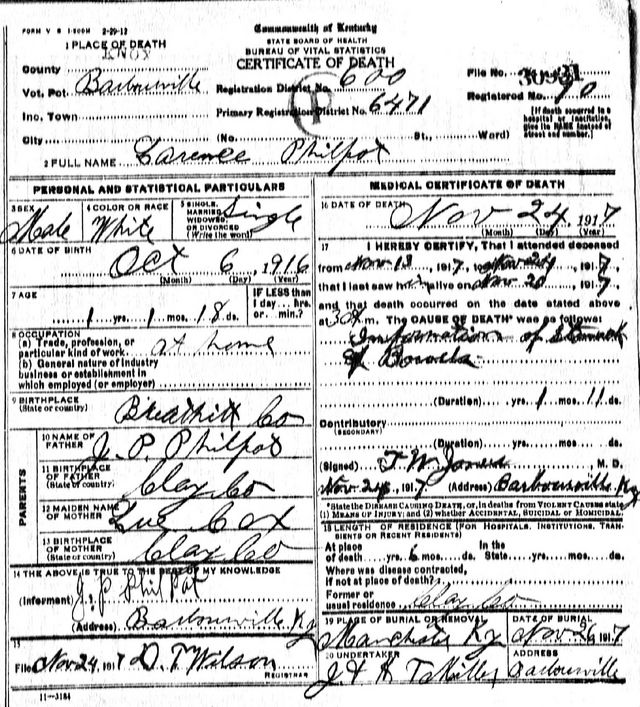 FORM V S 1-500M 2-29-12
Commonwealth of Kentucky
STATE BOARD OF HEALTH
BUREAU OF VITAL STATISTICS
CERTIFICATE OF DEATH
1 PLACE OF DEATH
KNOX
County
Vot. Pct. Barbourville
Inc. Town
City
Registration District No. 600
Primary Registration District No. 6471
P
File No. 30931
Registered No. 90
[If death occurred in a hospital or institution, give its NAME instead of street and number.]
(No. St., Ward)
2 FULL NAME Clarence Philpot
PERSONAL AND STATISTICAL PARTICULARS
3 SEX Male
4 COLOR OR RACE White
5 SINGLE, MARRIED, WIDOWED, OR DIVORCED (Write the word) Single
6 DATE OF BIRTH
Oct 6, 1916
(Month) (Day) (Year)
7 AGE
1 yrs. 1 mos. 18 ds.
IF LESS than 1 day... hrs. or min.?
8 OCCUPATION
(a) Trade, profession, or particular kind of work. at home
(b) General nature of industry business or establishment in which employed (or employer)
9 BIRTHPLACE (State or country) Breathitt Co
PARENTS
10 NAME OF FATHER J. P. Philpot
11 BIRTHPLACE OF FATHER (State or country) Clay Co
12 MAIDEN NAME OF MOTHER Sue Cox
13 BIRTHPLACE OF MOTHER (State or country) Clay Co
14 THE ABOVE IS TRUE TO THE BEST OF MY KNOWLEDGE
(Informant) J. P. Philpot
(Address) Barbourville Ky
15
Filed Nov 24, 1917 D. T. Wilson
REGISTRAR
11-3184
MEDICAL CERTIFICATE OF DEATH
16 DATE OF DEATH
Nov 24, 1917
(Month) (Day) (Year)
17 I HEREBY CERTIFY, That I attended deceased
from Nov 13, 1917, to Nov 24, 1917
that I last saw him alive on Nov 20, 1917,
and that death occurred on the date stated above
at m. The CAUSE OF DEATH* was as follows:
of Stomach
& Bowels
(Duration) yrs. 1 mos. 11 ds.
Contributory
(SECONDARY)
(Duration) yrs. mos. ds.
(Signed) T. W. Jones M. D.
Nov 24, 1917 (Address) Barbourville, Ky
*State the DISEASE CAUSING DEATH, or, in deaths from VIOLENT CAUSES state (1) MEANS OF INJURY; and (2) whether ACCIDENTAL, SUICIDAL or HOMICIDAL.
18 LENGTH OF RESIDENCE (FOR HOSPITALS, INSTITUTIONS, TRANSIENTS OR RECENT RESIDENTS)
At place of death yrs. 6 mos. ds. In the State yrs. mos. ds.
Where was disease contracted, if not at place of death?
Former or usual residence Clay Co
19 PLACE OF BURIAL OR REMOVAL Manchester Ky
DATE OF BURIAL Nov 26, 1917
20 UNDERTAKER
ADDRESS Barbourville